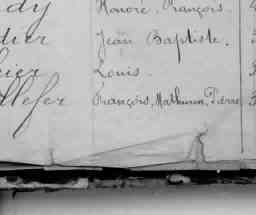 dy Honoré François.
dier Jean Baptiste.
cier Louis.
llefer François, Mathurin, Pierre